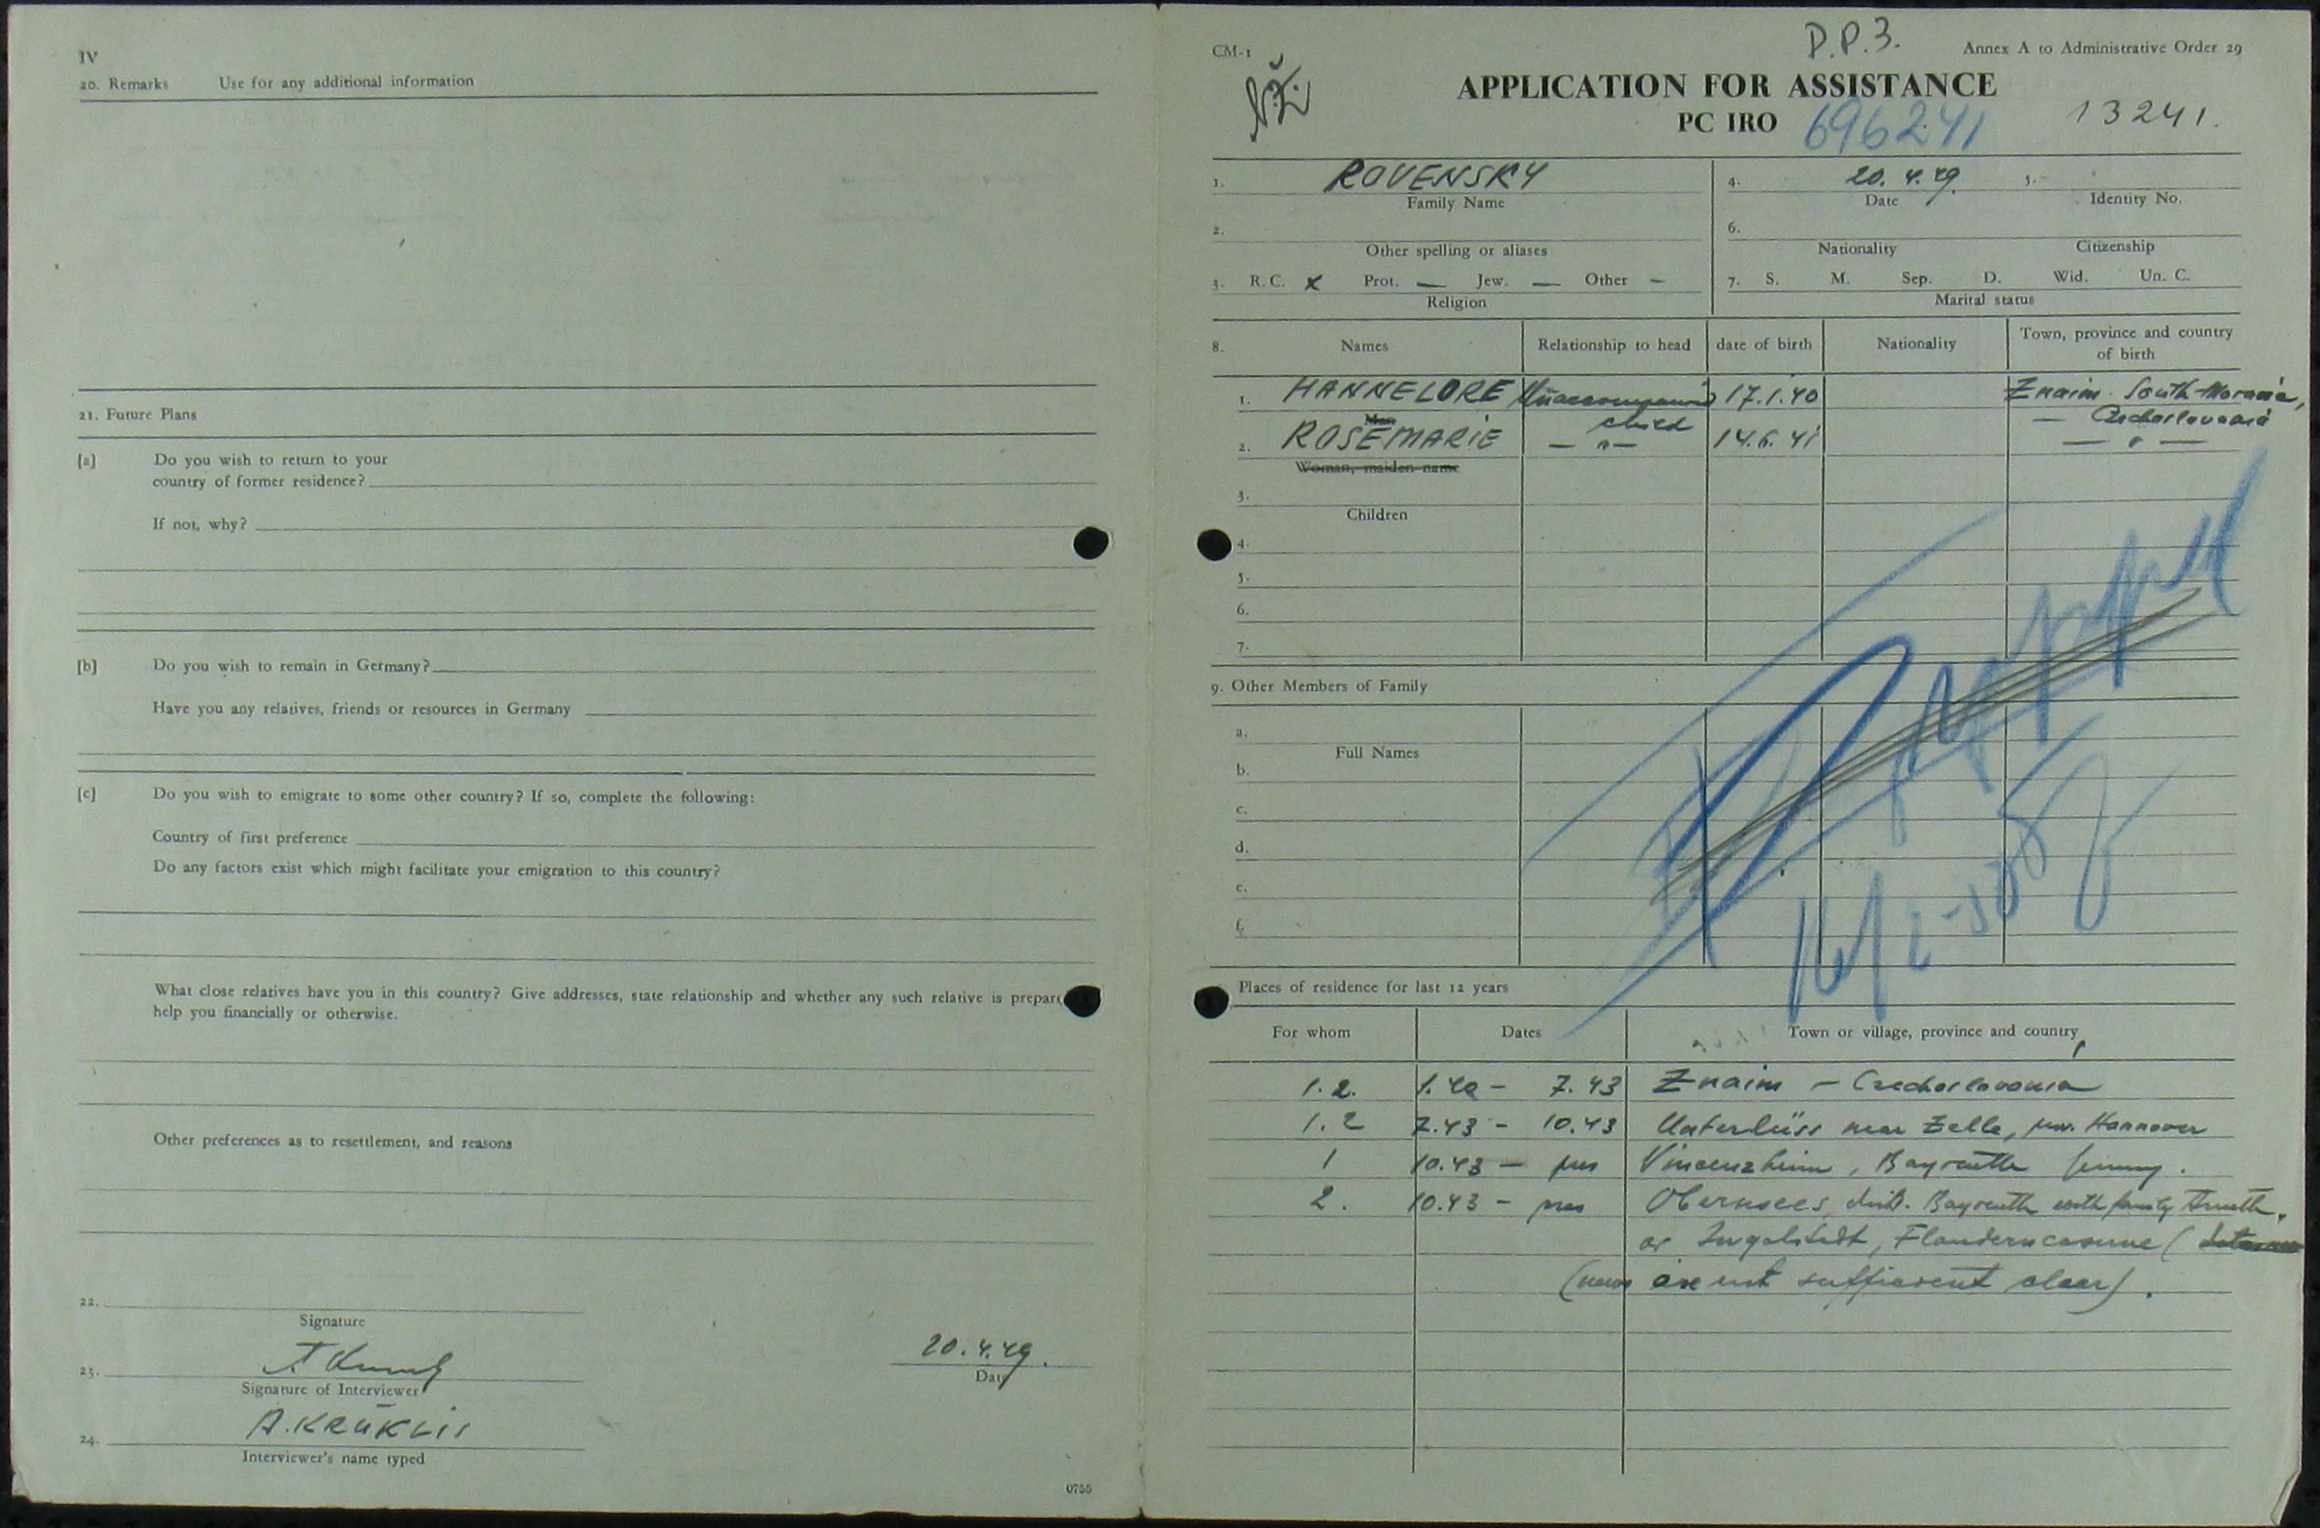 IV
20. Remarks Use for any additional information
21. Future Plans
[a] Do you wish to return to your
country of former residence?
If not, why?
[b] Do you wish to remain in Germany?
Have you any relatives, friends or resources in Germany
[c] Do you wish to emigrate to some other country? If so, complete the following:
Country of first preference
Do any factors exist which might facilitate your emigration to this country?
What close relatives have you in this country? Give addresses, state relationship and whether any such relative is prepare
help you financially or otherwise.
Other preferences as to resettlement, and reasons
22.
Signature
23. 20.4.49.
Signature of Interviewer Date
A. KRŪKLIS
24.
Interviewer's name typed
0755
CM-1 D.P.3. Annex A to Administrative Order 29
APPLICATION FOR ASSISTANCE
PC IRO 696241 13241.
1. ROVENSKY 4. 20. 4. 49. 5.
Family Name Date Identity No.
2. 6.
Other spelling or aliases Nationality Citizenship
3. R. C. x Prot. — Jew. — Other — 7. S. M. Sep. D. Wid. Un. C.
Religion Marital status
8. Names Relationship to head date of birth Nationality Town, province and country
of birth
1. HANNELORE Unaccompanied 17.1.40 Znaim South-Moravia,
Man child — Czechoslovakia
2. ROSEMARIE — " — 14.6.41 — " —
Woman, maiden name
3.
Children
4.
5.
6.
7.
9. Other Members of Family
a.
Full Names
b.
c.
d.
e.
f.
Places of residence for last 12 years
For whom Dates Town or village, province and country
1. 2. 1.40 - 7. 43 Znaim - Czechoslovakia
1. 2 7.43 - 10.43 Unterlüss near Zelle, prov. Hannover
1 10.43 — pres Vincenzheim, Bayreuth Germany.
2. 10.43 - pres Obernsees, distr. Bayreuth with family
or Ingolstadt, Flanderncaserne (
(news are not sufficient clear).